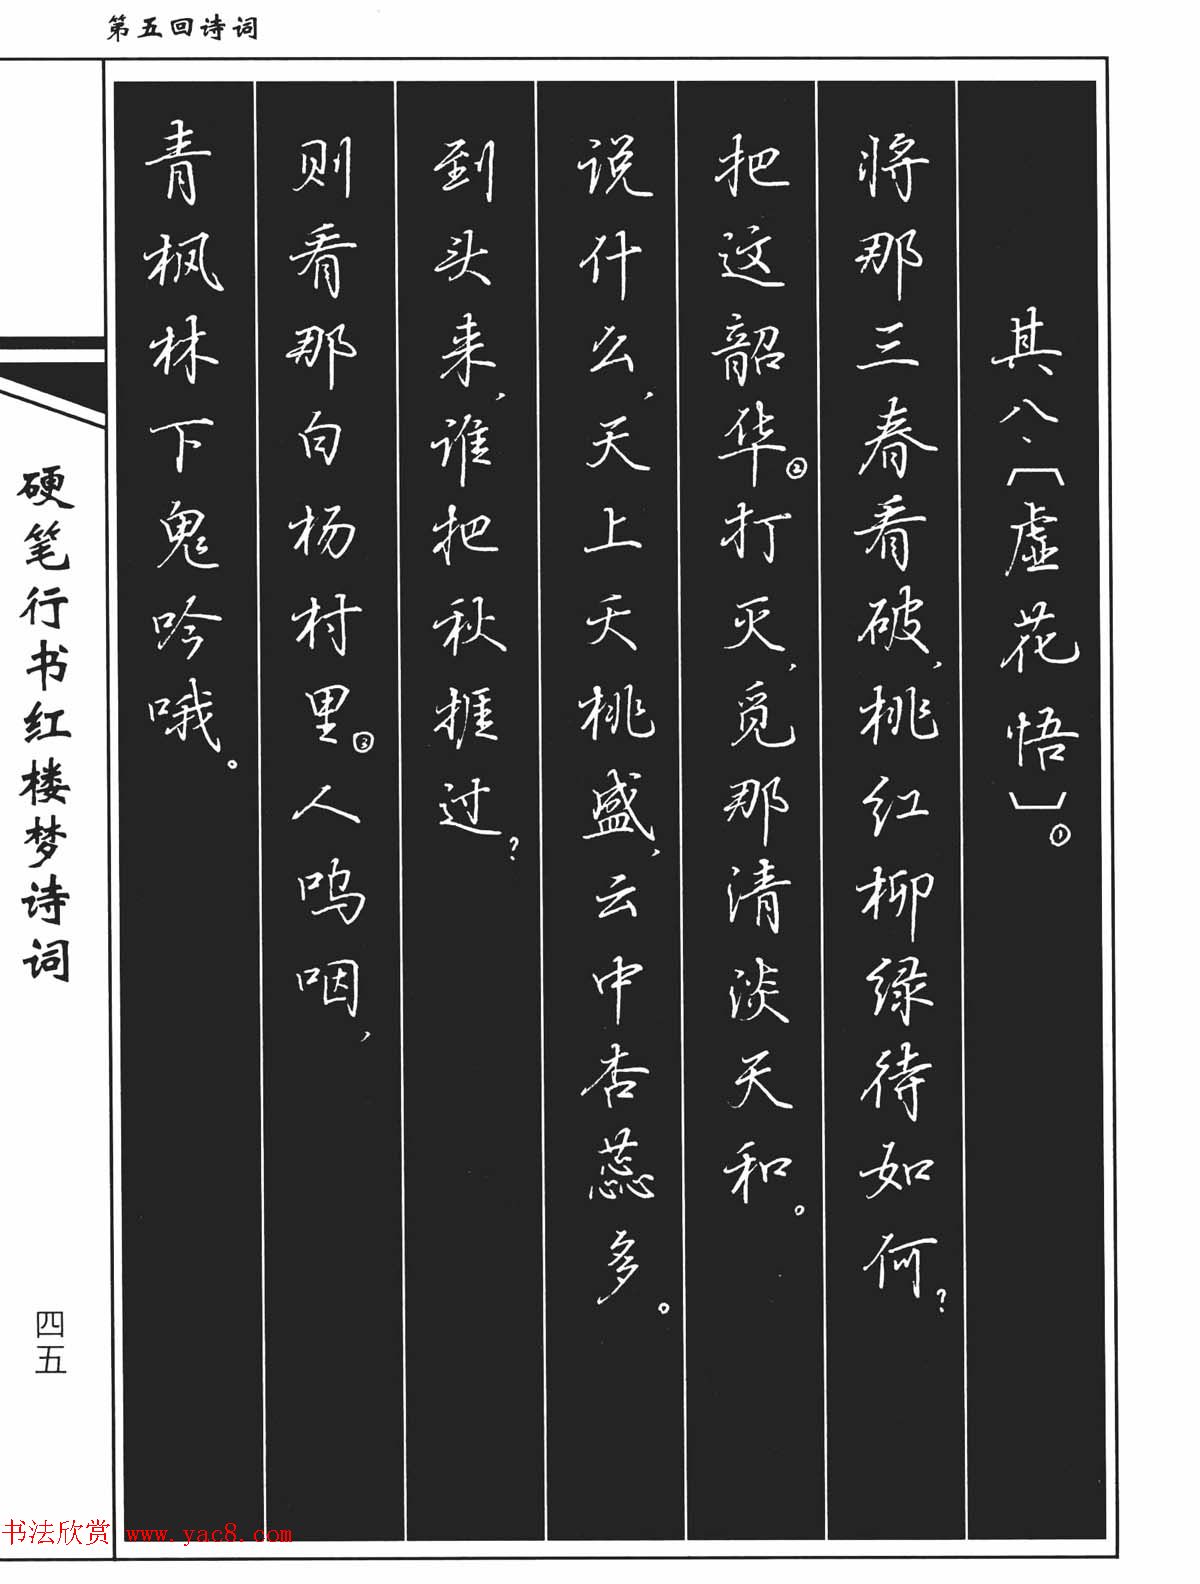 第五回诗词
其八、〔虚花悟〕①
将那三春看破,桃红柳绿待如何?
把这韶华②打灭,觅那清淡天和。
说什么,天上夭桃盛,云中杏蕊多。
到头来,谁把秋捱过?
则看那白杨村里③人呜咽,
青枫林下鬼吟哦。
硬笔行书红楼梦诗词
四五
书法欣赏 www.yac8.com